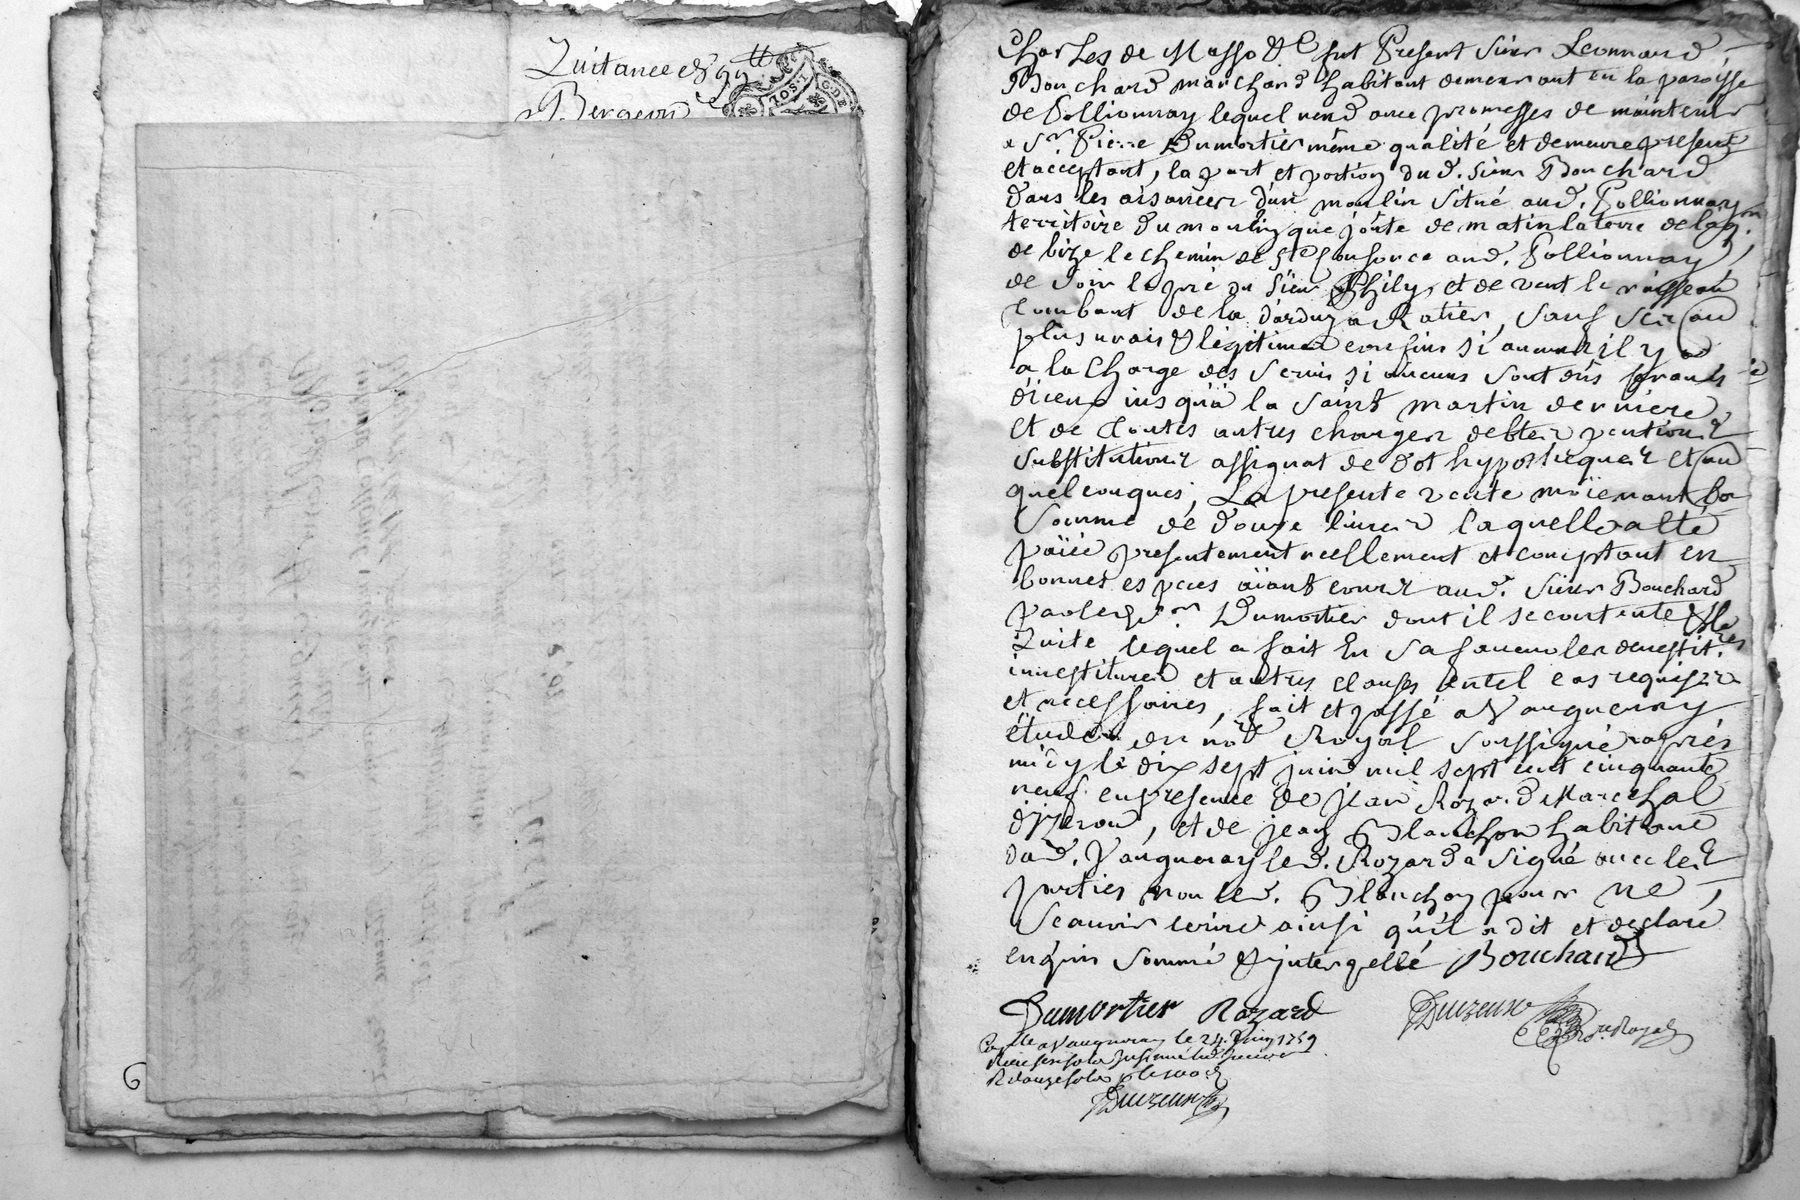 Quitance de 99 ll
Bergeon
Charles de Masso &c fut Present Sieur Leonnard
Bouchard marchand habitant demeurant en la paroisse
de Pollionnay lequel vend avec promesses de maintenir
a Sr. Pierre Dumortier même qualité et demeure present
et acceptant, la part et portion du d. Sieur Bouchard
dans les aisances d'un moulin Situé aud. Pollionnay
territoire du moulin que joûte de matin la terre de
de bize le chemin de aud. Pollionnay,
de Soir le pré du Sieur Phily, et de vent le ruisseau
tombant de la a Ratier, Sauf Ses
plus vrais & légitimes confins Si aucuns il y a
a la Charge des Servis Si aucuns Sont dûs francs
d'iceux jusqu'à la Saint martin derniere
et de toutes autres charges debtes pentions
Substitutions assignat de dot hypotheques et au
quelconques, La presente vente moïenant la
Somme de douze livres laquelle a été
païée presentement reellement et comptant en
bonnes especes aïant cours aud. Sieur Bouchard
par led. Sr. Dumortier dont il se contente & le
Quite lequel a fait En Sa faveur les devestit.res
investitures et autres clauses en tel cas requises
et necessaires, fait et passé a Vaugneray
étude du nore Royal Soussigné aprés
midy le dix sept juin mil Sept cent cinquante
neuf en presence de jean Rozard Marechal
d'yzeron, et de jean Blanchon habitant
dud. Vaugneray led. Rozard a Signé avec les
parties non led. Blanchon pour ne
Scavoir ecrire ainsi qu'il a dit et declaré
enquis Sommé & interpellé Bouchard
Dumortier Rozard
re Royal
Coñlé a Vaugneray le 24. Juin 1759
6